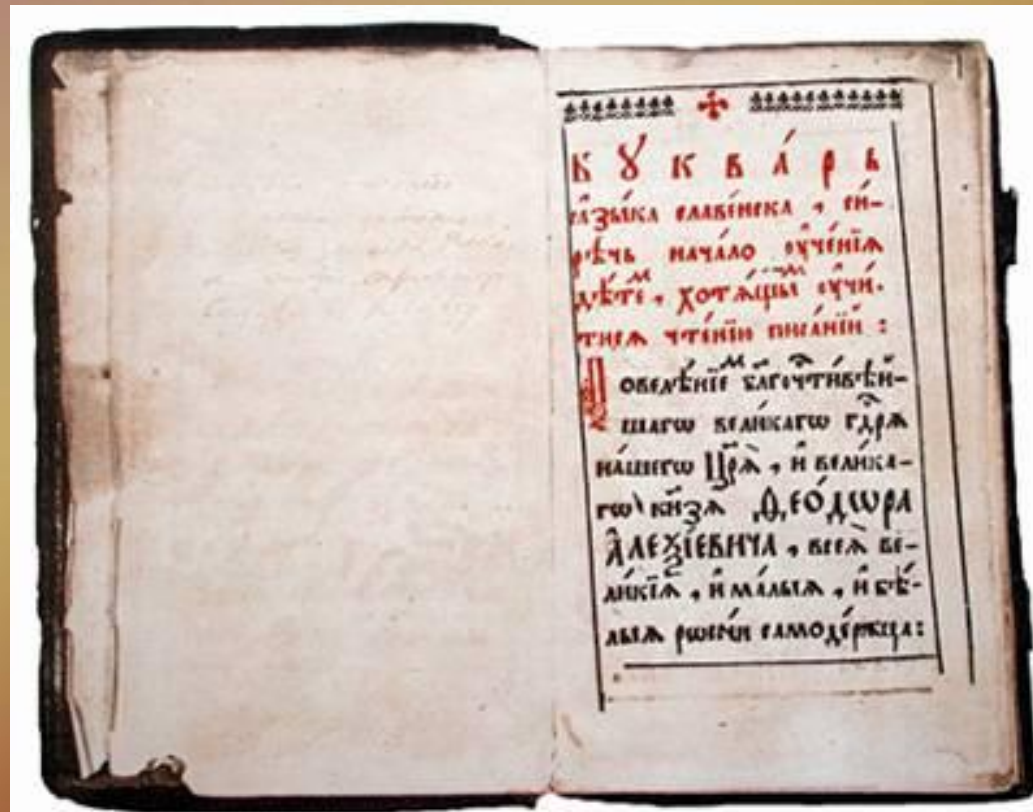 БꙊКВА́РЬ
ꙗ҆зы́ка славе́нска, си́-
рѣчь нача́ло ᲂу҆че́нїѧ
дѣ́теⷨ, хотѧ́щыⷨ ᲂу҆чи́-
тисѧ чте́нїю писа́нїй :
Повелѣ́нїеⷨ бл҃гоч\u200cти́вѣй-
шагѡ вели́кагѡ гдⷭ҇рѧ
на́шегѡ Цр҃ѧ̀, и҆ вели́ка-
гѡ кн҃зѧ Ѳ҆ео́дѡра
А҆леѯі́евича, всеѧ̀ ве-
ли́кїѧ, и҆ ма́лыѧ, и҆ бѣ́-
лыѧ рѡсси́и самоде́ржца :